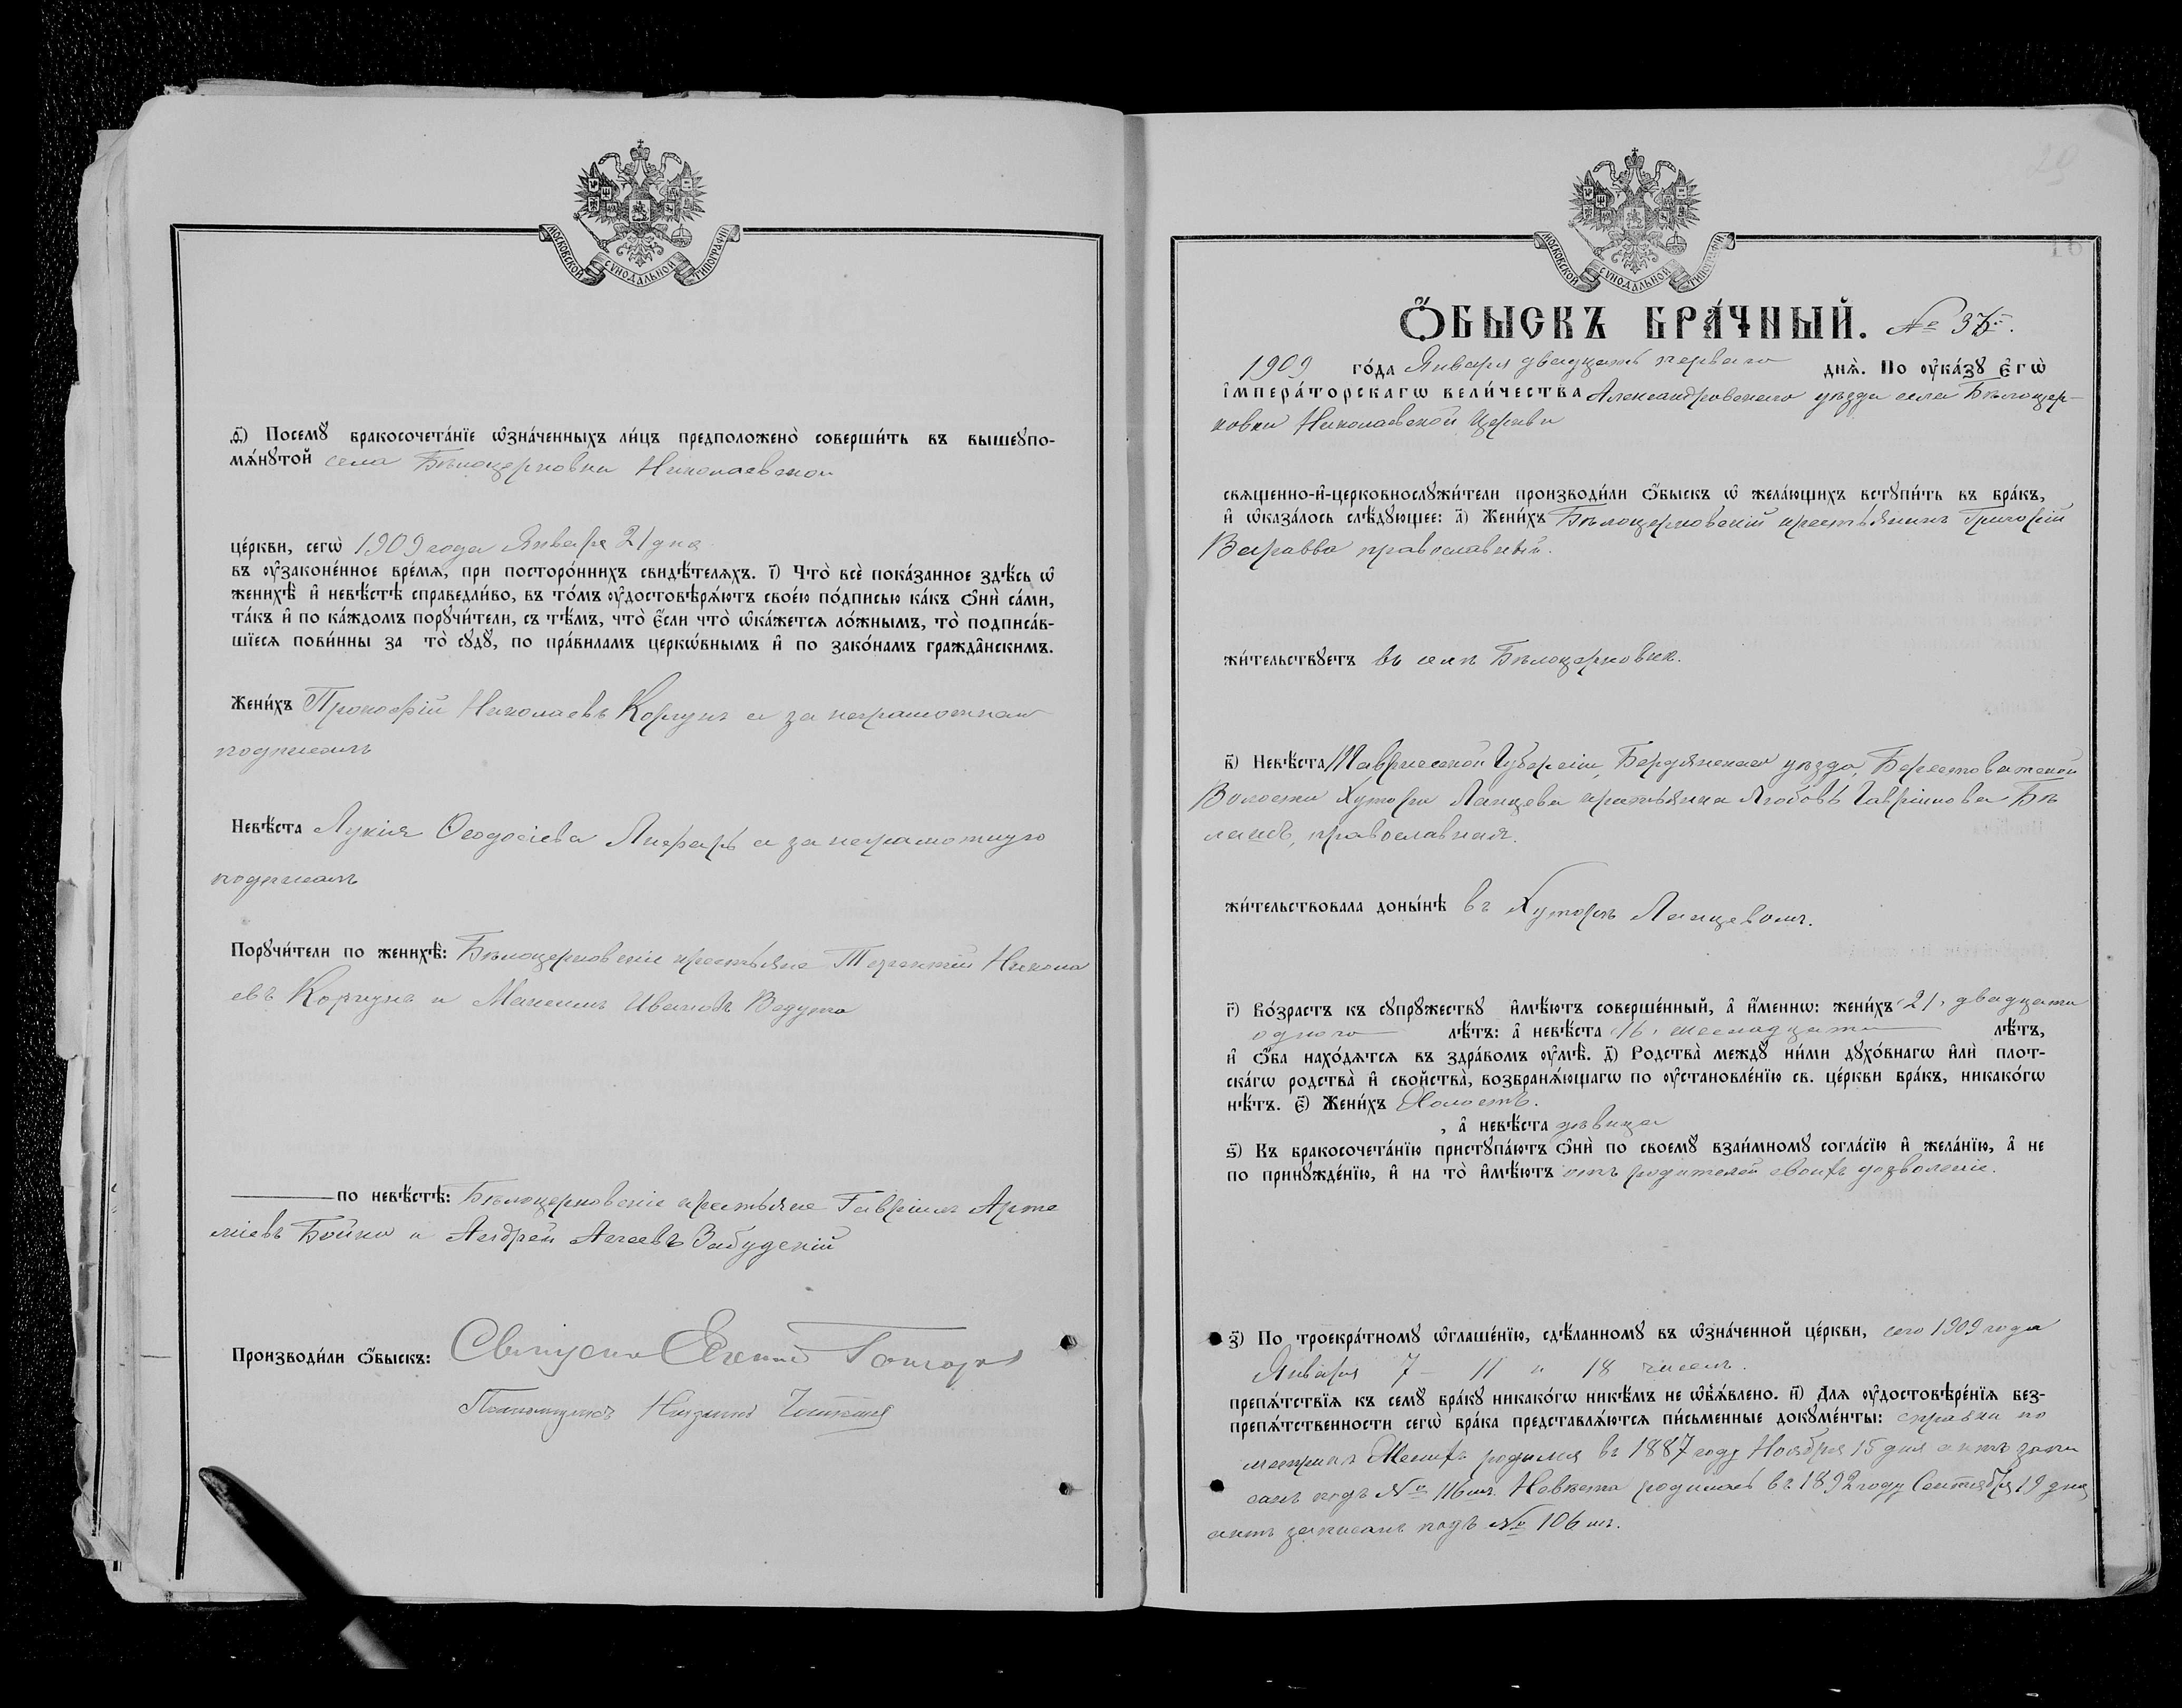 МОСКОВСКОЙ СѴНОДАЛЬНОЙ ТИПОГРАФІИ
ѳ҃) Посемꙋ̀ бракосочета́нїе ѡ҆зна́ченныхъ ли́цъ предположено̀ соверши́ть въ вышеꙋпо-
мѧ́нꙋтой села Бѣлоцерковки Николаевской
це́ркви, сегѡ̀ 1909 года Января 21 дня
въ ᲂу҆законе́нное вре́мѧ, при посторо́ннихъ свидѣ́телѧхъ. і҃) Что̀ всѐ пока́занное здѣ́сь ѡ҆
женихѣ̀ и҆ невѣ́стѣ справедли́во, въ то́мъ ᲂу҆достовѣрѧ́ютъ свое́ю по́дписью ка́къ ѻ҆нѝ са́ми,
та́къ и҆ по ка́ждомъ порꙋчи́тели, съ тѣ́мъ, что̀ є҆́сли что̀ ѡ҆ка́жетсѧ ло́жнымъ, то̀ подписа́в-
шїесѧ пови́нны за то̀ сꙋдꙋ̀, по пра́виламъ церкѡ́внымъ и҆ по зако́намъ гражда̂нскимъ.
Жени́хъ Прокофій Николаевъ Коржунъ а за неграмотнаго
подписалъ
Невѣ́ста Лукія Ѳеодосіева Лиферь а за неграмотную
подписалъ
Порꙋчи́тели по женихѣ̀: Бѣлоцерковскіе крестьяне Терентій Никола
евъ Коржунъ и Максимъ Ивановъ Ведута
по невѣ́стѣ: Бѣлоцерковскіе крестьяне Гавріилъ Арте
міевъ Бойко и Андрей Агеевъ Забудскій
Производи́ли ѻ҆́быскъ: Священникъ Евгеній
Псаломщикъ
МОСКОВСКОЙ СѴНОДАЛЬНОЙ ТИПОГРАФІИ
16
Ѻ҆́БЫСКЪ БРА́ЧНЫЙ. № 37й.
1909 го́да Января двадцать перваго днѧ̀. По ᲂу҆ка́зꙋ Є҆гѡ̀
і҆мпера́торскагѡ вели́чества Александровскаго уѣзда села Бѣлоцер-
ковки Николаевской Церкви
свѧщенно-и҆-церковнослꙋжи́тели производи́ли ѻ҆́быскъ ѡ҆ жела́ющихъ встꙋпи́ть въ бра́къ,
и҆ ѡ҆каза́лось слѣ́дꙋющее: а҃) Жени́хъ Бѣлоцерковскій крестьянинъ Григорій
Варавва православный.
жи́тельствꙋетъ въ селѣ Бѣлоцерковкѣ.
в҃) Невѣ́ста Таврической Губерніи, Бердянскаго уѣзда, Берестоватской
Волости Хутора Ланцева крестьянка Любовь Гавріилова Бѣ
лашъ, православная.
жи́тельствовала доны́нѣ въ Хуторѣ Ланцевомъ.
г҃) Во́зрастъ къ сꙋпрꙋ́жествꙋ и҆мѣ́ютъ соверше́нный, а҆ и҆́меннѡ: жени́хъ 21, двадцати
одного лѣ́тъ: а҆ невѣ́ста 16, шестнадцати лѣ́тъ,
и҆ ѻ҆́ба нахо́дѧтсѧ въ здра́вомъ ᲂу҆мѣ̀. д҃) Родства̀ междꙋ̀ ни́ми дꙋхо́внагѡ и҆лѝ плот-
ска́гѡ родства̀ и҆ свойства̀, возбранѧ́ющагѡ по ᲂу҆становле́нїю св. це́ркви бра́къ, никако́гѡ
нѣ́тъ. є҃) Жени́хъ Холостъ.
, а҆ невѣ́ста дѣвица
ѕ҃) Къ бракосочета́нїю пристꙋпа́ютъ ѻ҆нѝ по своемꙋ̀ взаи́мномꙋ согла́сїю и҆ жела́нїю, а҆ не
по принꙋжде́нїю, и҆ на то̀ и҆мѣ́ютъ отъ родителей своихъ дозволеніе.
з҃) По троекра́тномꙋ ѡ҆глаше́нїю, сдѣ́ланномꙋ въ ѡ҆зна́ченной це́ркви, сего 1909 года
Января 7 – 11 и 18 числъ.
препѧ́тствїѧ къ семꙋ̀ бра́кꙋ никако́гѡ никѣ́мъ не ѡ҆б̾ѧ́влено. и҃) Длѧ ᲂу҆достовѣре́нїѧ без-
препѧ́тственности сегѡ̀ бра́ка представлѧ́ютсѧ пи́сьменные докꙋме́нты: справки по
метрикѣ Женихъ родился въ 1887 году Ноября 15 дня актъ запи
санъ подъ № 116 мъ. Невѣста родилась въ 1892 году Сентября 19 дня
актъ записанъ подъ № 106 мъ.